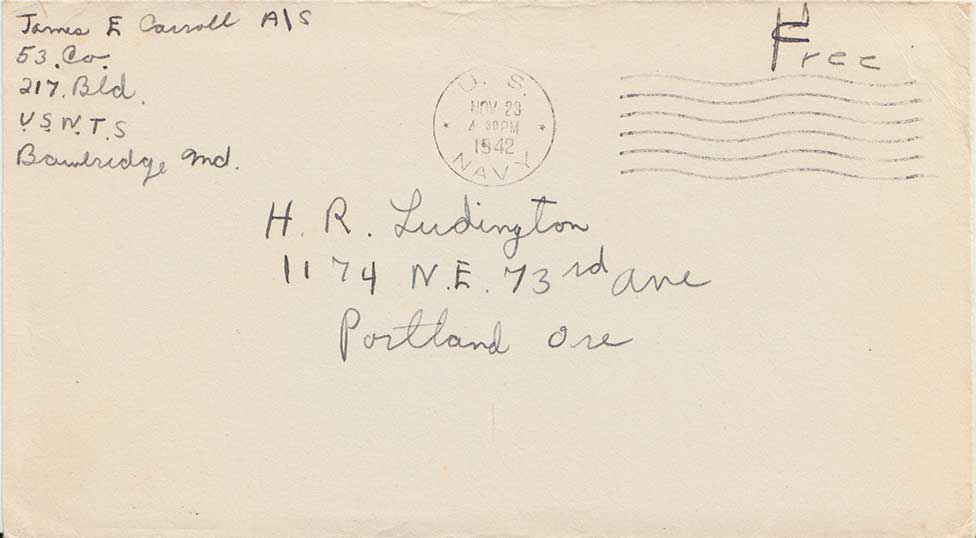 James E Carroll A/S
53. Co.
217. Bld.
U.S.N.T.S
Bainbridge Md.
Free
U. S.
NOV 23
30 PM
1942
NAVY
H. R. Ludington
1174 N.E. 73rd ave
Portland Ore